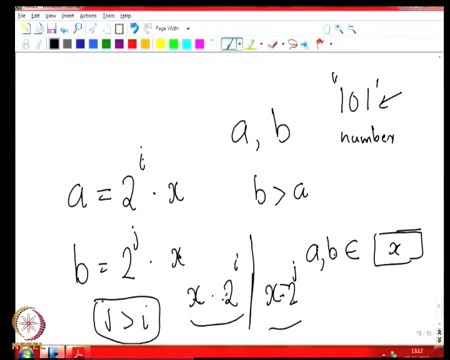 File Edit View Insert Actions Tools Help
Page Width
"101"
a, b
number
a = 2^i · x
b > a
b = 2^j · x
a, b ∈ x
j > i
x · 2^i | x = 2^j
10 / 10
13:12